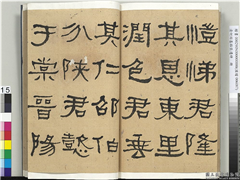 愷悌君隆
其恩東里
潤色君垂
其仁邵伯
分陝君懿
于棠晉陽
15